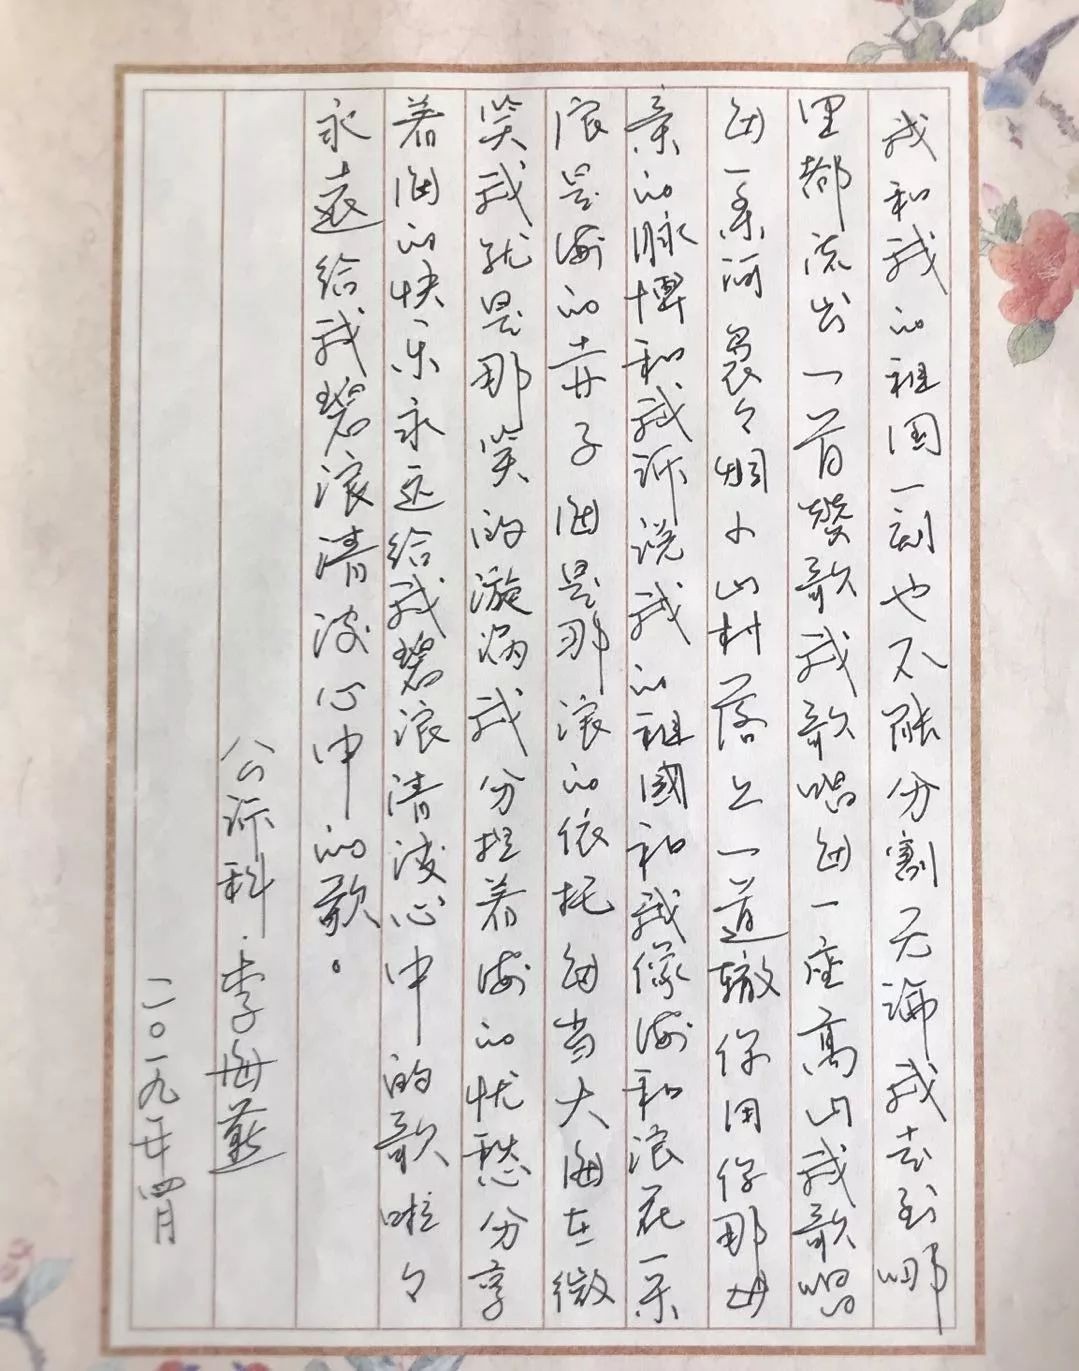 我和我的祖国一刻也不能分割无论我去到哪
里都流出一首赞歌我歌唱每一座高山我歌唱
每一条河袅々烟小山村落上一道辙你用你那母
亲的脉搏和我诉说我的祖國和我像海和浪花一朵
浪是海的赤子海是那浪的依托每当大海在微
笑我就是那笑的漩涡我分担着海的忧愁分享
着海的快乐永远给我碧浪清波心中的歌啦々
永遠给我碧浪清波心中的歌。
公诉科·李海
二〇一九年四月